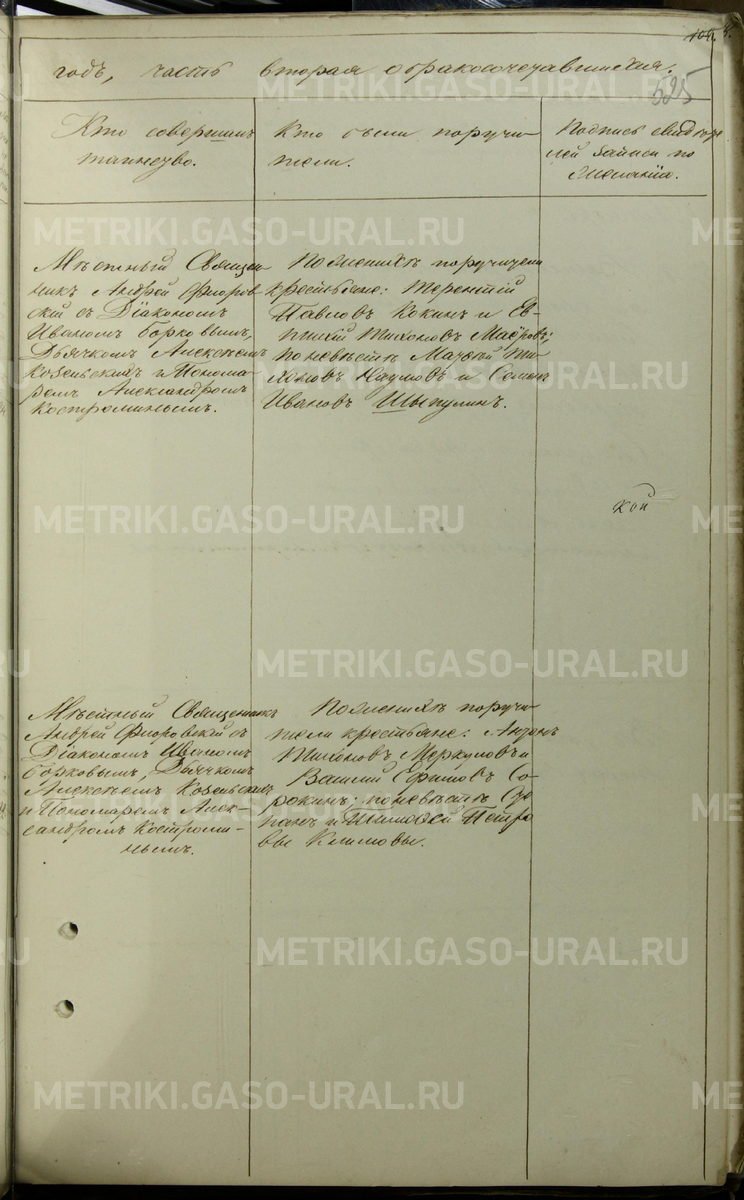 годъ, часть вторая о бракосочетавшихся.
525
Кто совершалъ
таинство.
Кто были поручи-
тели.
Подпись свидѣте
лей записи по
желанію.
Мѣстный Священ
никъ Андрей Флоров
скій съ Діакономъ
Иваномъ Борковымъ,
Дьячкомъ Алексѣемъ
Козельскимъ и Понома
ремъ Александромъ
Костроминымъ.
По женихѣ поручители
крестьяне: Терентій
Павловъ Кокинъ и Ев-
Тихоновъ
по невѣстѣ Матвѣй Ти-
хоновъ Наумовъ и Семенъ
Ивановъ Шыпулинъ.
Кой
Мѣстный Священникъ
Андрей Флоровскій съ
Діакономъ Иваномъ
Борковымъ, Дьячкомъ
Алексѣемъ Козельскимъ
и Пономаремъ Алек-
сандромъ Костроми-
нымъ.
По женихѣ поручи-
тели крестьяне: Антонъ
Тихоновъ Меркуловъ и
Василій Ефимовъ Со-
рокинъ; по невѣстѣ Сте
панъ и Тимофей Петро
вы Климовы.
METRIKI.GASO-URAL.RU